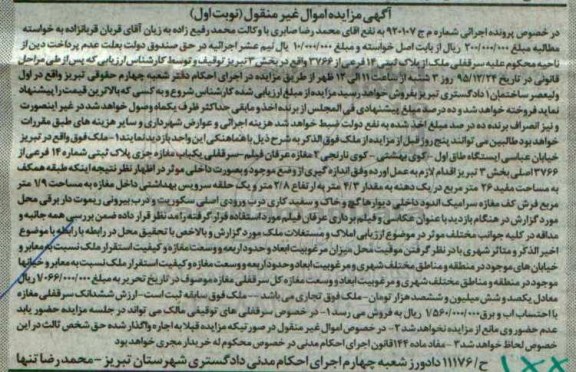 آگهی مزایده اموال غیر منقول (نوبت اول)
در خصوص پرونده اجرائی شماره م ج ۹۲۰۱۰۷ به نفع آقای محمد صابری با وکالت محمد رفیع زاده به زیان آقای قربان قربانزاده به خواسته
مطالبه مبلغ ۲۰۰/۰۰۰/۰۰۰ ریال از بابت اصل خواسته و مبلغ ۱۰/۰۰۰/۰۰۰ ریال نیم عشر اجرائیه در حق صندوق دولت بعلت عدم پرداخت دین از
ناحیه محکوم علیه سرقفلی ملک از پلاک ثبتی ۱۴ فرعی از ۳۷۶۶ واقع در بخش ۳ تبریز توقیف و توسط کارشناس ارزیابی که پس از طی مراحل
قانونی در تاریخ ۹۵/۱۲/۲۴ روز ۳ شنبه از ساعت ۱۱ الی ۱۲ ظهر از طریق مزایده در اجرای احکام دفتر شعبه چهارم حقوقی تبریز واقع در اول
ولیعصر ساختمان ۱ دادگستری تبریز بفروش خواهد رسید مزایده از مبلغ ارزیابی شده کارشناس شروع و به کسی که بالاترین قیمت را پیشنهاد
نماید فروخته خواهد شد و ده درصد مبلغ پیشنهادی فی المجلس از برنده اخذ و مابقی حداکثر ظرف یکماه وصول خواهد شد در غیر اینصورت
و نیز انصراف برنده ده در صد مبلغ اخذ شده به نفع دولت ضبط خواهد شد هزینه اجرائی و عوارض شهرداری و سایر هزینه های طبق مقررات
خواهد بود طالبین می توانند پنج روز قبل از مزایده از ملک فوق الذکر به شرح ذیل با هماهنگی این واحد بازدید نمایند ۱- ملک فوق واقع در تبریز
خیابان عباسی ایستگاه طاق اول - کوی بهشتی - کوی نارنجی ۲ مغازه عرفان فیلم - سرقفلی یکباب مغازه جزی پلاک ثبتی شماره ۱۴ فرعی از
۳۷۶۶ اصلی بخش ۳ تبریز اقدام لازم به عمل آورده وفق اندازه گیری از وضع موجود و بصورت داخلی موثر در اظهار نظر نتیجه اینکه طبقه همکف
به مساحت مفید ۲۶ متر مربع در یک دهنه به مقدار ۴/۳ متر به ارتفاع ۲/۸ متر و یک حلقه سرویس بهداشتی داخل مغازه به مساحت ۱/۹ متر
مربع فرش کف مغازه سرامیک اندود داخلی دیوارها گچ و خاک و سفید کاری درب ورودی اصلی سکوریت و درب بیرونی ریموت دار برقی محل
مورد گزارش در هنگام بازدید با عنوان عکاسی و فیلم برداری عرفان فیلم مورد استفاده قرار گرفته را مد نظر قرار داده ضمن بررسی همه جانبه و
مداقه در کلیه جوانب مختلف موثر در موضوع ارزیابی املاک و مستغلات ملک مورد گزارش و بالاخص با تحقیق محل در رابطه با رابطه با موضوع
اخیر الذکر و متاثر شهری با در نظر گرفتن موقیت محل میزان مرغوبیت ابعاد و حدود اربعه و وسعت مغازه و کیفیت استقرار ملک نسبت به معابر و
خیابان های موجود در منطقه و مناطق مختلف شهری و مرغوبیت ابعاد و حدود اربعه و وسعت مغازه و کیفیت استقرار ملک نسبت به معابر و خیابانها
موجود در منطقه و مناطق مختلف شهری و مرغوبیت ابعاد و وسعت مغازه کل سرقفلی مغازه موصوف در تاریخ تحریر به مبلغ ۱/۰۶۶/۰۰۰/۰۰۰ ریال
معادل یکصد و شش میلیون و ششصد هزار تومان - ملک فوق تجاری می باشد - ملک فوق سابقه ثبت است - ارزش ششدانگ سرقفلی مغازه
با احتساب آب و برق ۱/۵۶۰/۰۰۰/۰۰۰ ریال به فروش می رسد ۱- در خصوص سرقفلی های توقیفی مالک می تواند در جلسه مزایده حضور یابد
عدم حضور وی مانع از مزایده نخواهد شد ۲- در خصوص اموال غیر منقول در صورتیکه مزایده قبلا به اجاره واگذار شده حق شخص ثالث در این
خصوص لحاظ خواهد شد ۳- مفاد ماده ۱۴۳ قانون اجرای احکام مدنی در خصوص محکوم له خریدار مجری خواهد بود
ح/۱۱۱۷۶ دادورز شعبه چهارم اجرای احکام مدنی دادگستری شهرستان تبریز - محمدرضا تنها